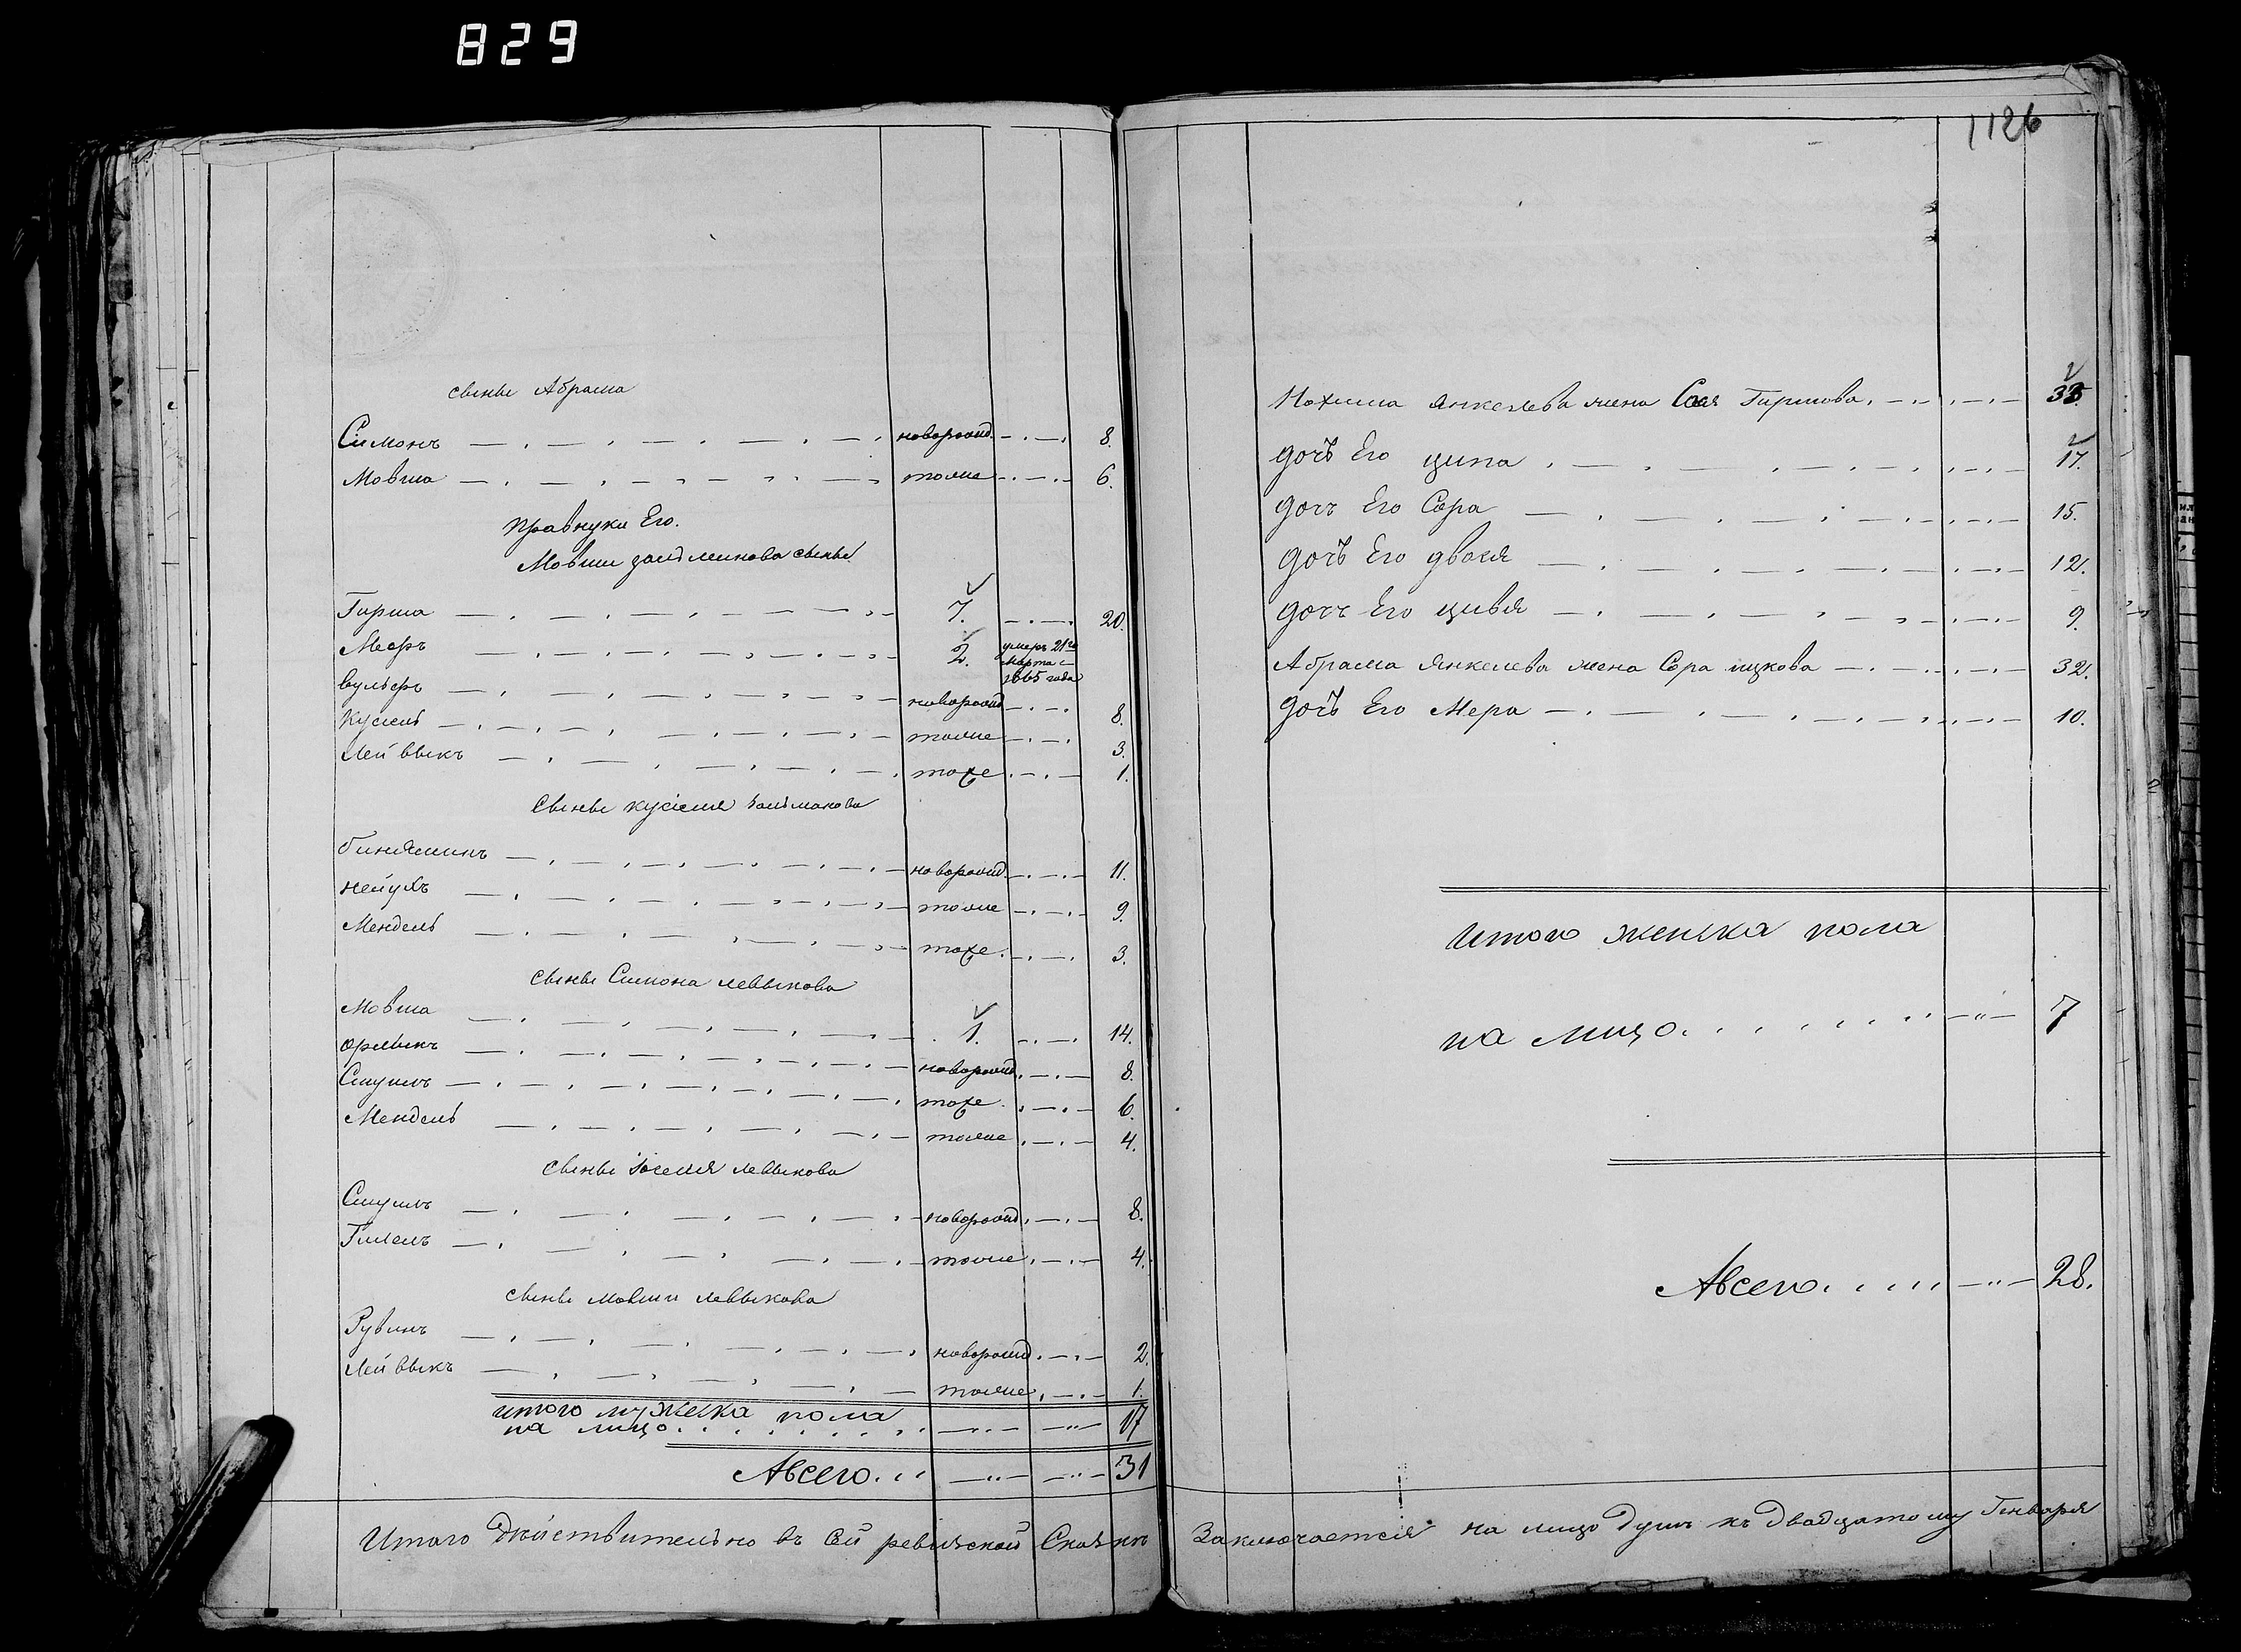 829
1126
сынье Абрама
Симонъ новорожд. 8.
Мовша тоже 6.
правнуки Его.
Мовши залмынова сынье
Гирша 7. 20.
Мееръ 2. умеръ 21го
марта
вульфъ новорожд 8.
Кусель тоже 3.
Лейвыкъ тоже 1.
Сынье кусиеля залмонова
биниаминъ новорожд. 11.
тоже 9.
Мендель тоже. 3.
сынье Симона левыкова
Мовша 1. 14.
новорожд 8.
Смуилъ тоже. 6.
Мендель тоже 4.
сынье іоселя левыкова
Смуилъ новорожд. 8.
тоже 4.
сынье мовши левыкова
Рувинъ новорожд. 2.
Лейвыкъ тоже 1.
итого мужеска пола
на лицо 17
Авсего 31
Итого действительно въ сей ревизской Сказкѣ
Нохима янкелева жена Гиршова. 33.
дочь Его ципа 17.
дочъ Его Сора 15.
дочь Его двося 12.
дочъ Его цивя 9.
Абрама Янкелева жена Сора ицкова 32.
дочь Его Мера 10.
итого женска пола
на лицо. 7
Авсего. 28.
Заключается на лицо душъ къ двадцатому Генваря